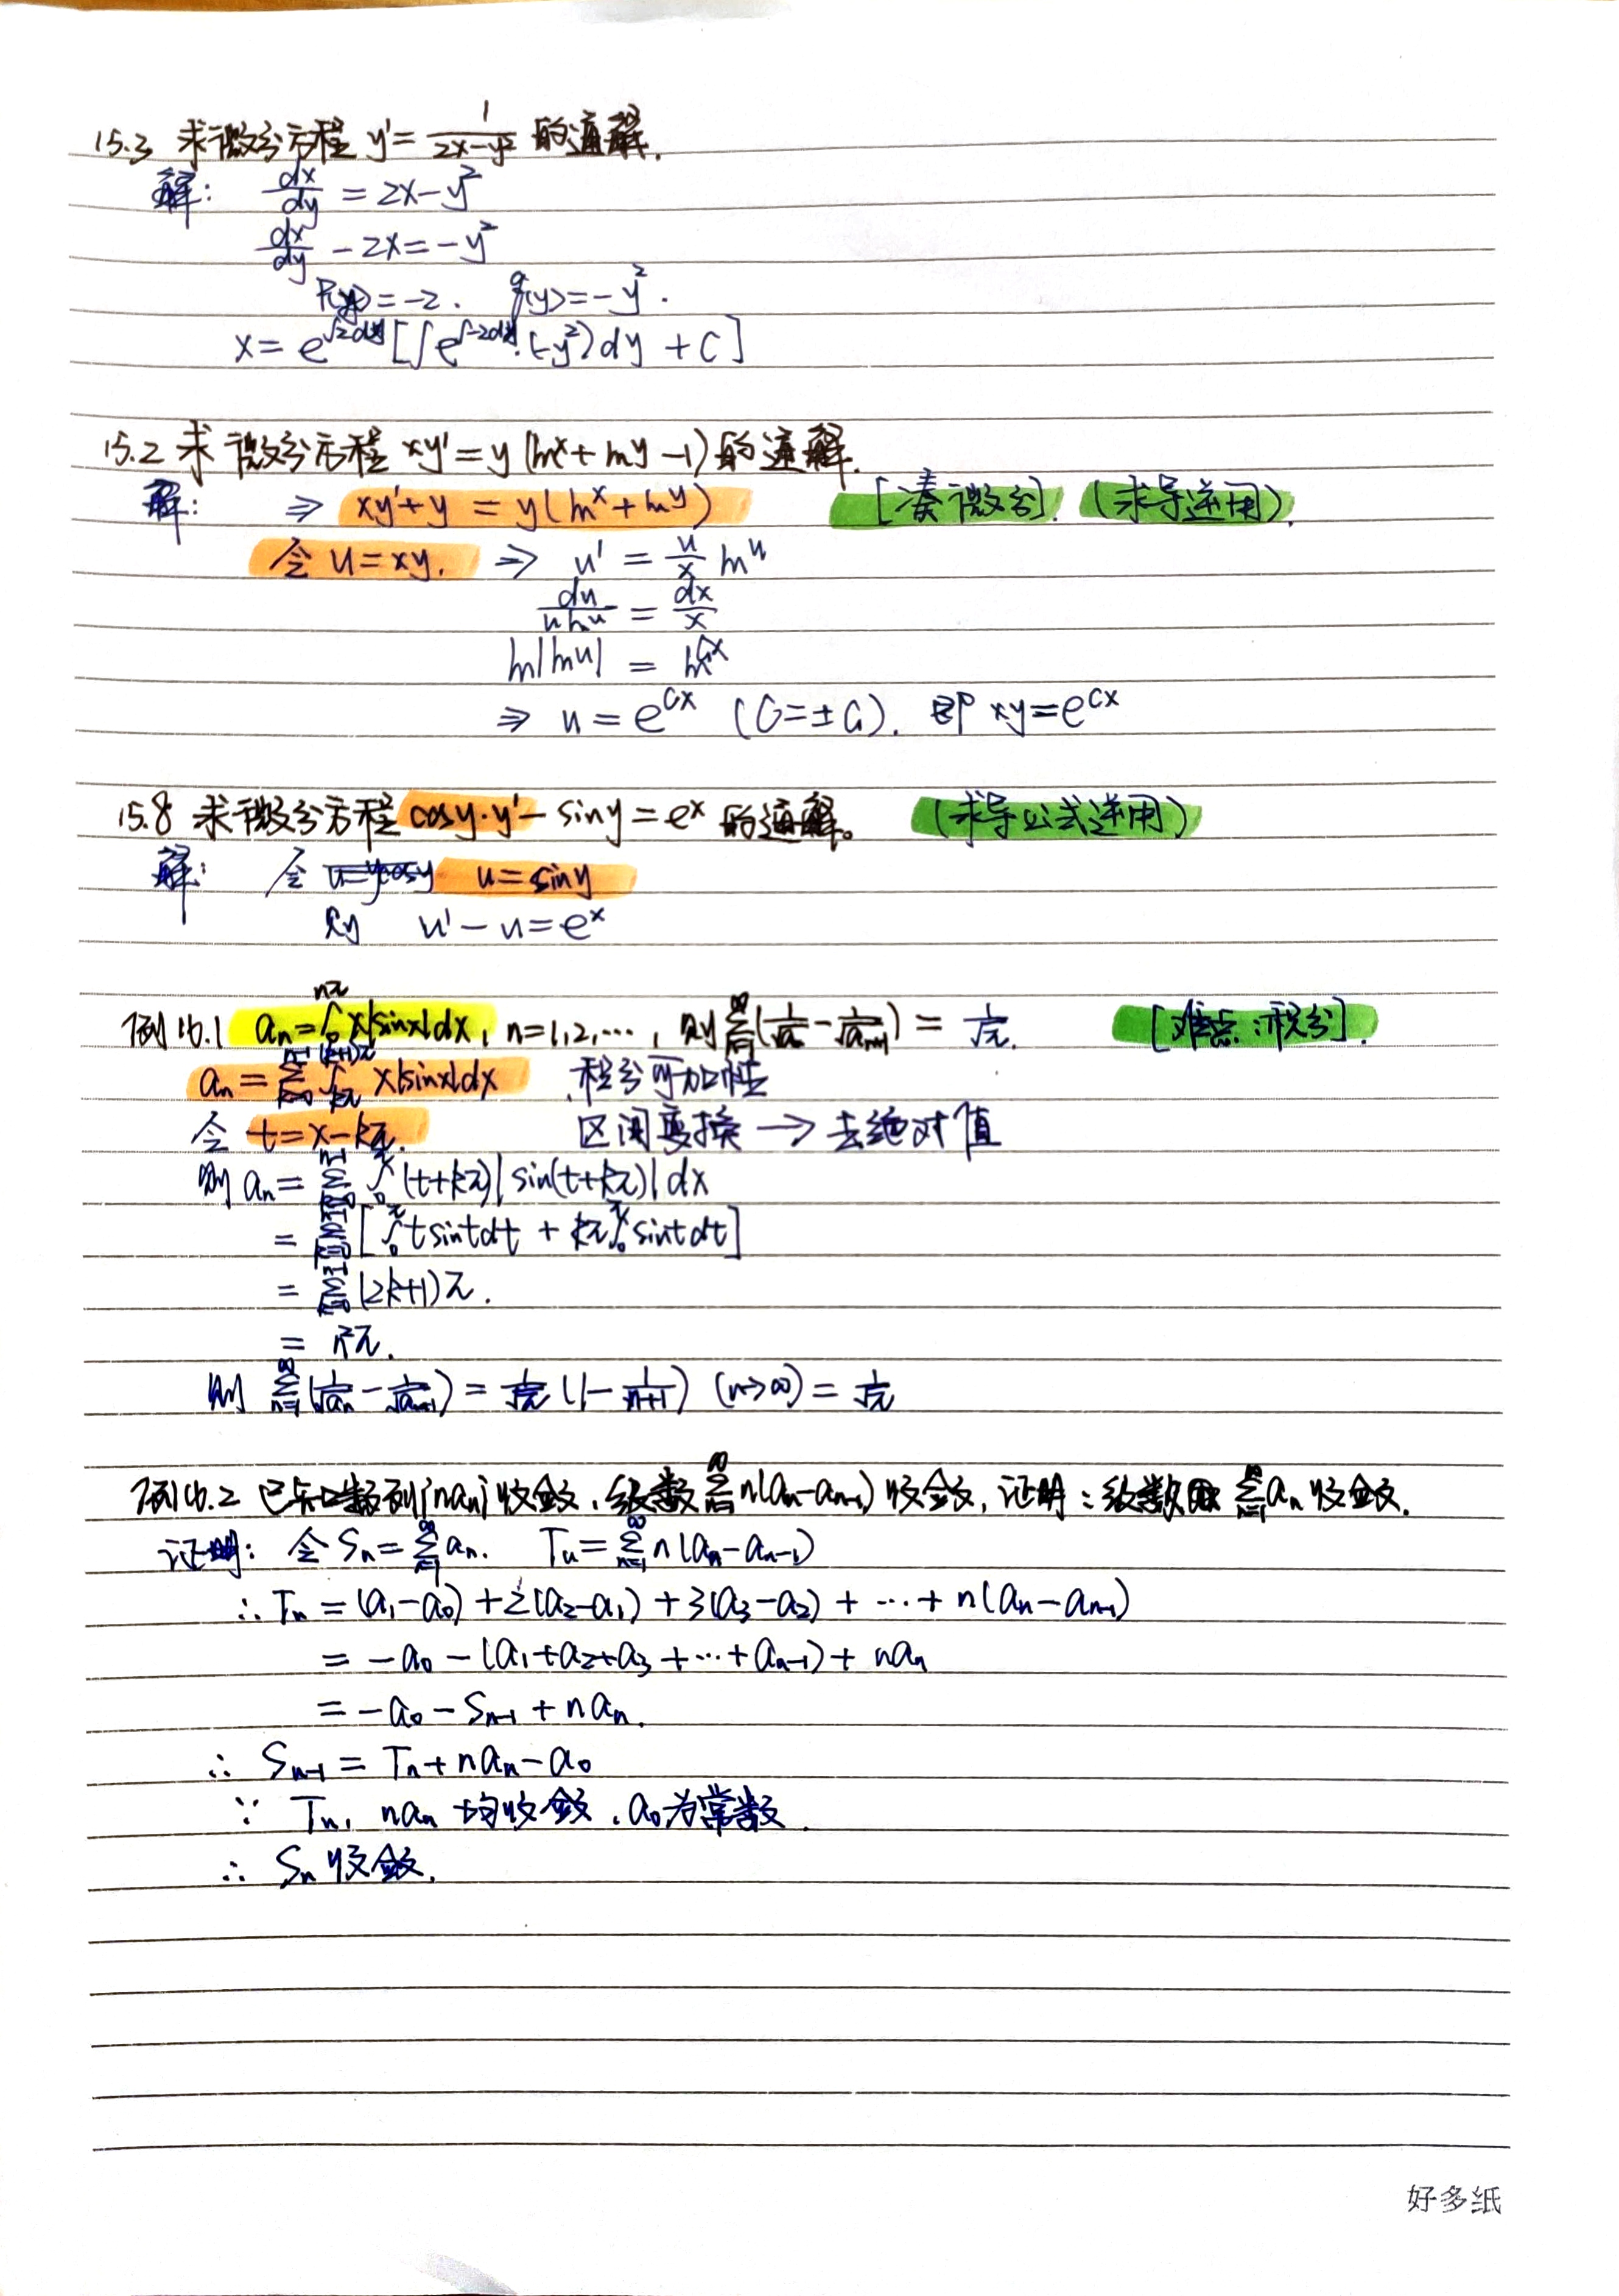 15.3 求微分方程 y' = 1/(2x-y²) 的通解.
解: dx/dy = 2x-y²
dx/dy - 2x = -y²
P(y) = -2. q(y) = -y².
x = e^{∫2dy} [∫e^{∫-2dy}·(-y²)dy + C]
15.2 求微分方程 xy' = y(ln x + ln y - 1) 的通解.
解: ⇒ xy'+y = y(ln x + ln y) [凑微分]. (求导逆用).
令 u = xy. ⇒ u' = u/x ln u
du/(u ln u) = dx/x
ln|ln u| = ln C₁x
⇒ u = e^{Cx} (C = ±C₁). 即 xy = e^{Cx}
15.8 求微分方程 cosy·y' - siny = e^x 的通解。 (求导公式逆用)
解: 令 u = siny
则 u' - u = e^x
例16.1 aₙ = ∫₀^{nπ} x|sinx|dx, n=1,2,…, 则 ∑_{n=1}^∞ (1/√aₙ - 1/√aₙ₊₁) = 1/√π. [难点:积分].
aₙ = ∑_{k=0}^{n-1} ∫_{kπ}^{(k+1)π} x|sinx|dx 积分可加性
令 t = x-kπ. 区间变换 → 去绝对值
则 aₙ = ∑_{k=0}^{n-1} ∫₀^π (t+kπ)|sin(t+kπ)|dx
= ∑_{k=0}^{n-1} [∫₀^π tsintdt + kπ∫₀^π sintdt]
= ∑_{k=0}^{n-1} (2k+1)π.
= n²π.
则 ∑_{n=1}^∞ (1/√aₙ - 1/√aₙ₊₁) = 1/√π (1 - 1/(n+1)) (n→∞) = 1/√π
例16.2 已知数列{naₙ}收敛, 级数 ∑_{n=1}^∞ n(aₙ-aₙ₋₁) 收敛, 证明: 级数 ∑_{n=1}^∞ aₙ 收敛.
证明: 令 Sₙ = ∑_{n=1}^∞ aₙ. Tₙ = ∑_{n=1}^∞ n(aₙ-aₙ₋₁)
∴ Tₙ = (a₁-a₀) + 2(a₂-a₁) + 3(a₃-a₂) + … + n(aₙ-aₙ₋₁)
= -a₀ - (a₁+a₂+a₃+…+aₙ₋₁) + naₙ
= -a₀ - Sₙ₋₁ + naₙ.
∴ Sₙ₋₁ = Tₙ + naₙ - a₀
∵ Tₙ, naₙ 均收敛, a₀为常数.
∴ Sₙ 收敛.
好多纸